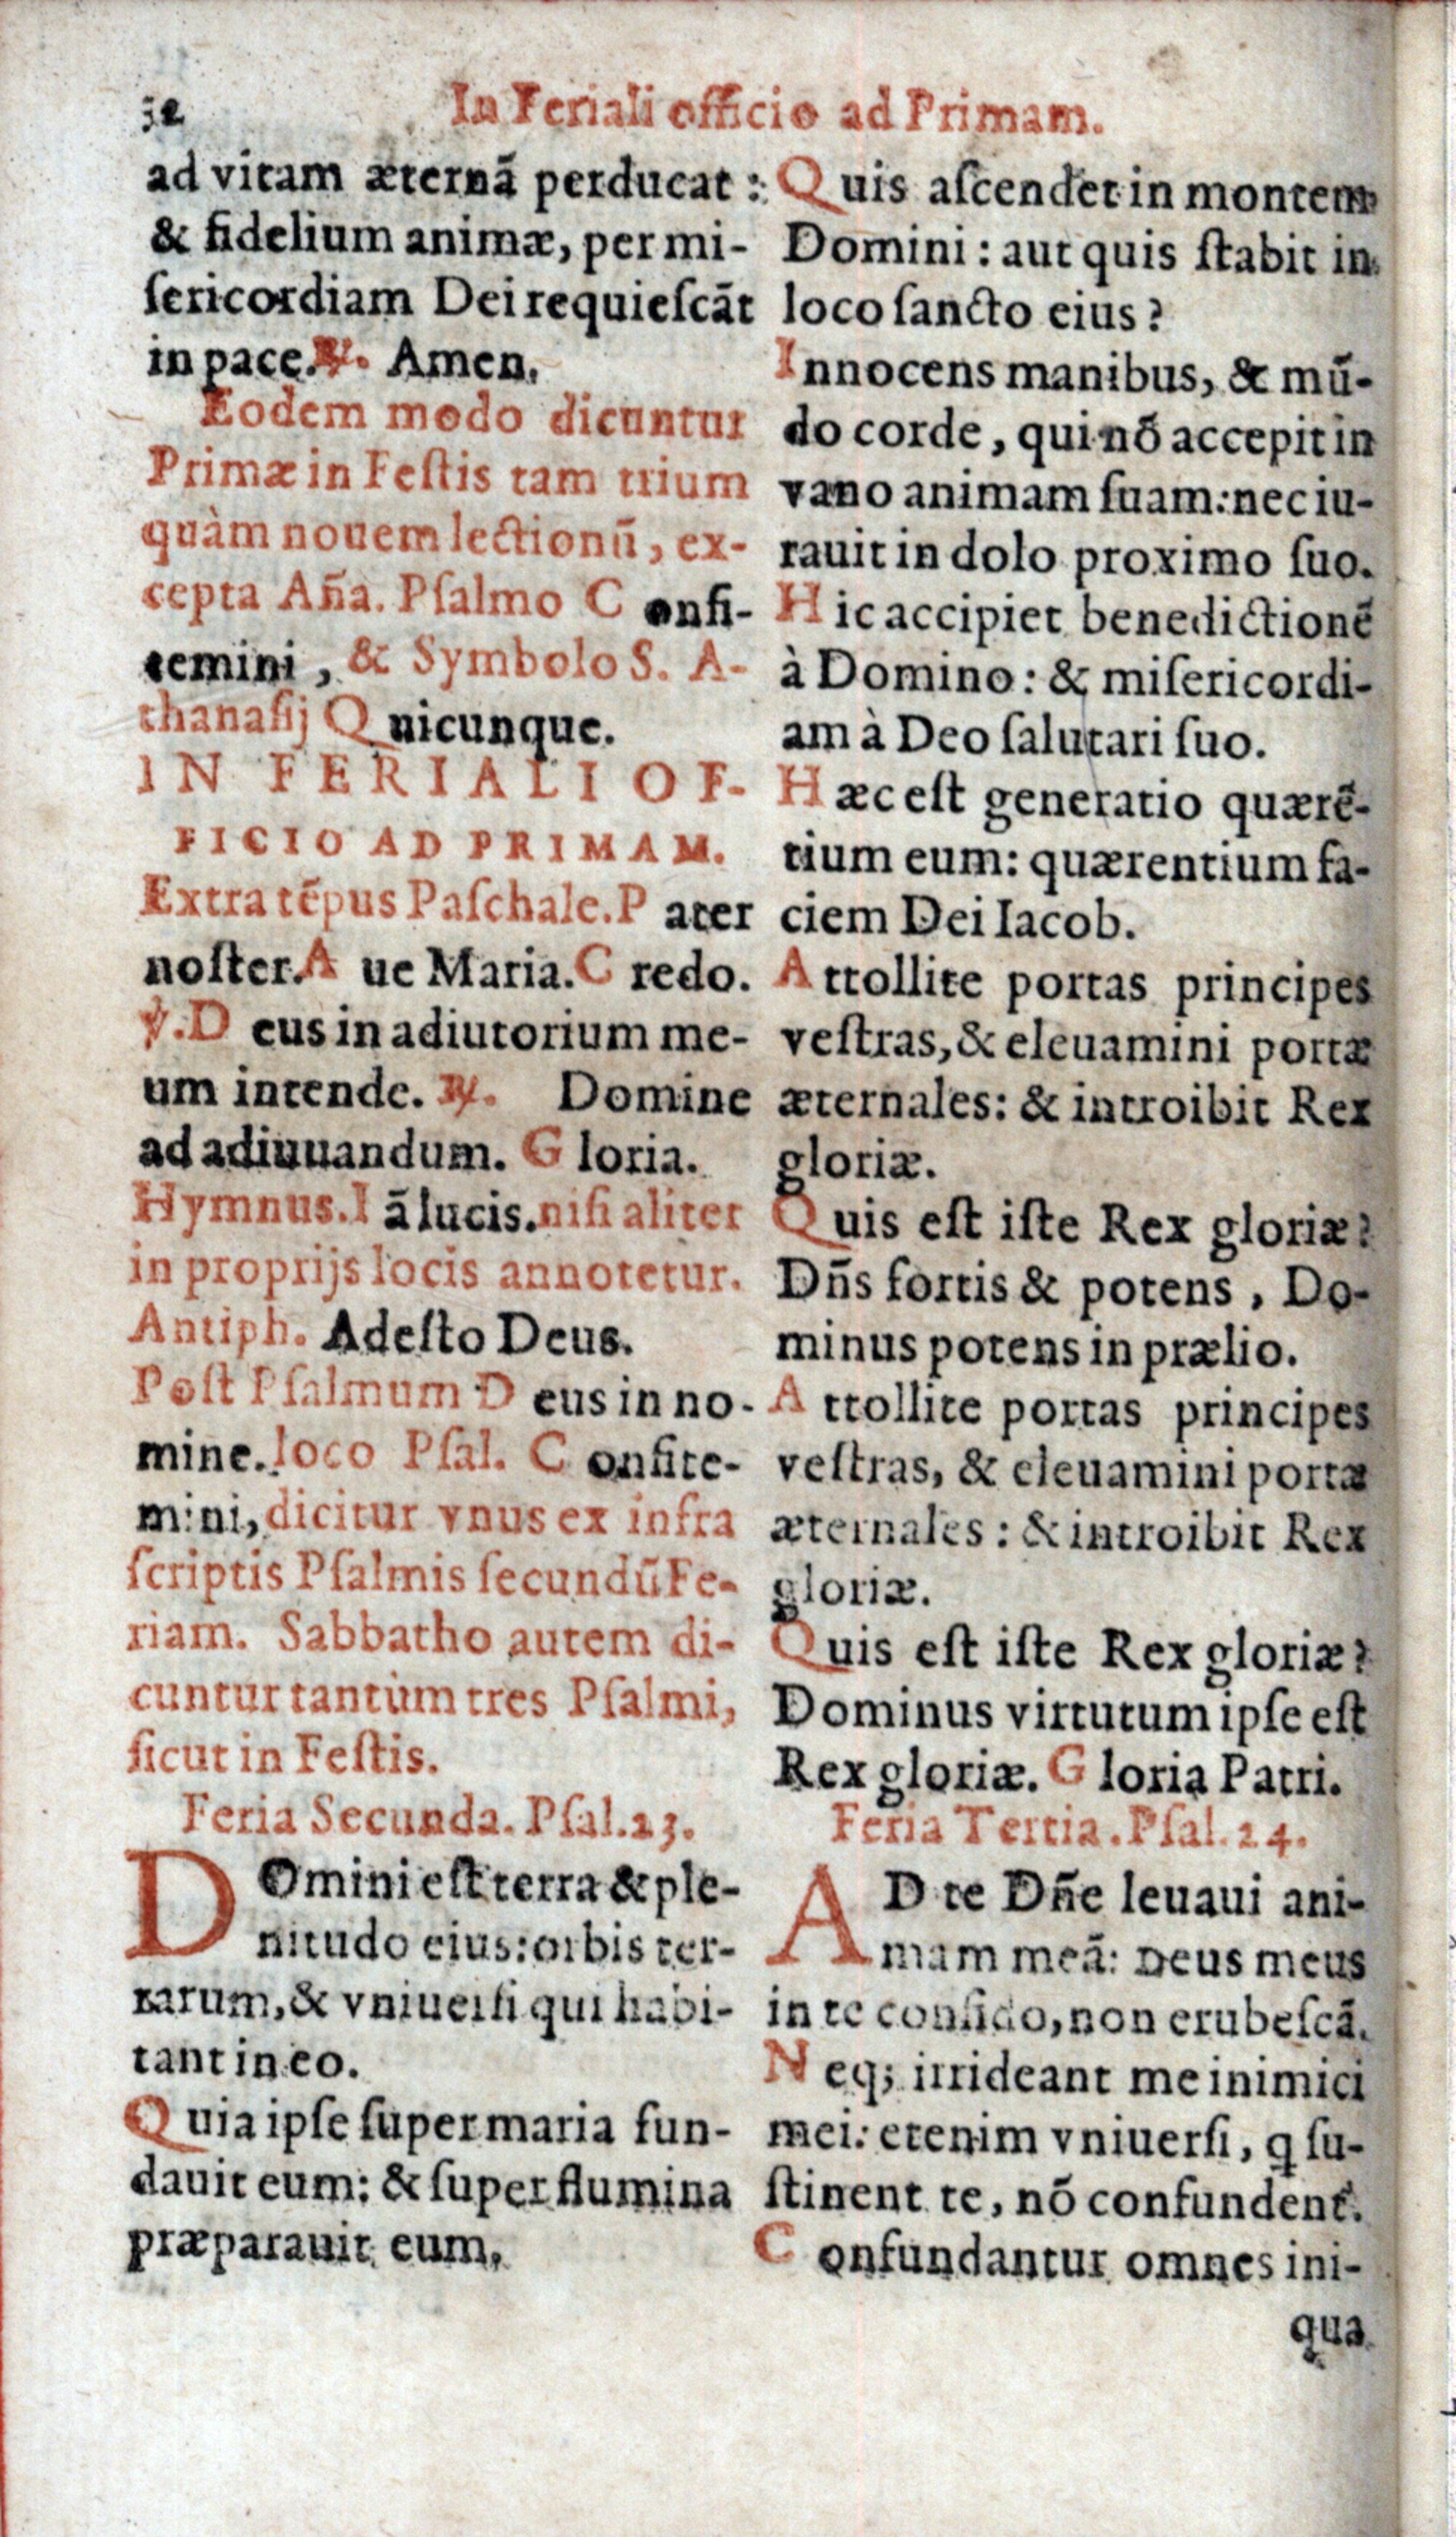 32
In Feriali officio ad Primam.
ad vitam æternã perducat:
& fidelium animæ, per mi-
ſericordiam Dei requieſcãt
in pace. ℟. Amen.
Eodem modo dicuntur
Primæ in Feſtis tam trium
quàm nouem lectionũ, ex-
cepta Añа. Pſalmo Confi-
temini, & Symbolo S. A-
thanaſij Quicunque.
IN FERIALI OF-
FICIO AD PRIMAM.
Extra tẽpus Paſchale. Pater
noſter. Aue Maria. Credo.
℣. Deus in adiutorium me-
um intende. ℟. Domine
ad adiuuandum. Gloria.
Hymnus. Iã lucis. niſi aliter
in proprijs locis annotetur.
Antiph. Adeſto Deus.
Poſt Pſalmum Deus in no-
mine. loco Pſal. Confite-
mini, dicitur vnus ex infra
ſcriptis Pſalmis ſecundũ Fe-
riam. Sabbatho autem di-
cuntur tantùm tres Pſalmi,
ſicut in Feſtis.
Feria Secunda. Pſal. 23.
DOmini eſt terra & ple-
nitudo eius: orbis ter-
rarum, & vniuerſi qui habi-
tant in eo.
Quia ipſe ſuper maria fun-
dauit eum: & ſuper flumina
præparauit eum.
Quis aſcendet in montem
Domini: aut quis ſtabit in
loco ſancto eius?
Innocens manibus, & mũ-
do corde, qui nõ accepit in
vano animam ſuam: nec iu-
rauit in dolo proximo ſuo.
Hic accipiet benedictionẽ
à Domino: & miſericordi-
am à Deo ſalutari ſuo.
Hæc eſt generatio quærẽ-
tium eum: quærentium fa-
ciem Dei Iacob.
Attollite portas principes
veſtras, & eleuamini portæ
æternales: & introibit Rex
gloriæ.
Quis eſt iſte Rex gloriæ?
Dñs fortis & potens, Do-
minus potens in prælio.
Attollite portas principes
veſtras, & eleuamini portæ
æternales: & introibit Rex
gloriæ.
Quis eſt iſte Rex gloriæ?
Dominus virtutum ipſe eſt
Rex gloriæ. Gloria Patri.
Feria Tertia. Pſal. 24.
AD te Dñe leuaui ani-
mam meã: Deus meus
in te confido, non erubeſcã.
Neq; irrideant me inimici
mei: etenim vniuerſi, q ſu-
ſtinent te, nõ confundent́.
Confundantur omnes ini-
qua